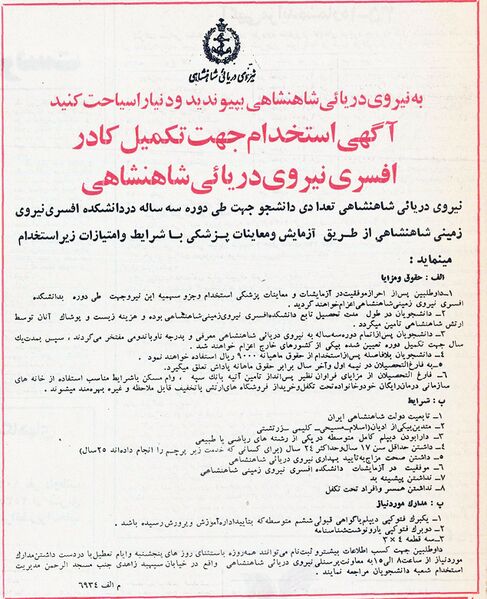 نیروی دریائی شاهنشاهی
به نیروی دریائی شاهنشاهی بپیوندید و دنیا را سیاحت کنید
آگهی استخدام جهت تکمیل کادر
افسری نیروی دریائی شاهنشاهی
نیروی دریائی شاهنشاهی تعدادی دانشجو جهت طی دوره سه ساله در دانشکده افسری نیروی
زمینی شاهنشاهی از طریق آزمایش ومعاینات پزشکی با شرایط وامتیازات زیر استخدام
مینماید :
الف : حقوق ومزایا
۱- داوطلبین پس از احراز موفقیت در آزمایشات و معاینات پزشکی استخدام وجزو سهمیه این نیرو جهت طی دوره بدانشکده
افسری نیروی زمینی شاهنشاهی اعزام خواهند گردید .
۲- دانشجویان در طول مدت تحصیل تابع دانشکده افسری نیروی زمینی شاهنشاهی بوده و هزینه زیست و پوشاک آنان توسط
ارتش شاهنشاهی تامین میگردد .
۳- دانشجویان پس از اتمام دوره سه ساله به نیروی دریائی شاهنشاهی معرفی و بدرجه ناوباندومی مفتخر می گردند ، سپس بمدت یک
سال جهت تکمیل دوره تعیین شده بیکی از کشورهای خارج اعزام خواهند شد .
۴- دانشجویان بلافاصله پس از استخدام از حقوق ماهیانه ۹۰۰۰ ریال استفاده خواهند نمود .
۵- به فارغ التحصیلان در نیمه اول وآخر سال برابر حقوق ماهانه پاداش تعلق میگیرد .
۶- فارغ التحصیلان از مزایای فراوان نظیر پس انداز تامین آتیه بانک سپه ، وام مسکن با شرایط مناسب استفاده از خانه های
سازمانی درمان رایگان خود وخانواده تحت تکفل وخرید از فروشگاه های ارتش با تخفیف قابل ملاحظه و غیره بهره مند میشوند .
ب : شرایط
۱- تابعیت دولت شاهنشاهی ایران
۲- متدین بیکی از ادیان (اسلام - مسیحی - کلیمی - زرتشتی
۳- دارا بودن دیپلم کامل متوسطه در یکی از رشته های ریاضی یا طبیعی
۴- داشتن حداقل سن ۱۷ سال وحداکثر ۲۴ سال (برای کسانی که خدمت زیر پرچم را انجام داده اند ۲۵سال)
۵- داشتن صحت مزاج به تایید بهداری نیروی دریائی شاهنشاهی
۶- موفقیت در آزمایشات دانشکده افسری نیروی زمینی شاهنشاهی
۷- نداشتن پیشینه بد
۸- نداشتن همسر وافراد تحت تکفل
پ : مدارک مورد نیاز
۱- یکبرگ فتوکپی دیپلم یا گواهی قبولی ششم متوسطه که بتایید اداره آموزش وپرورش رسیده باشد .
۲- دو برگ فتوکپی یا رونوشت شناسنامه
۳- سه قطعه ۴ × ۳
داوطلبین جهت کسب اطلاعات بیشتر و ثبت نام می توانند همه روزه باستثنای روز های پنجشنبه و ایام تعطیل با در دست داشتن مدارک
مورد نیاز از ساعت ۸ الی ۱۵ به معاونت پرسنلی نیروی دریائی شاهنشاهی واقع در خیابان سپهبد زاهدی جنب مسجد الرحمن مدیریت
استخدام شعبه دانشجویان مراجعه نمایند .
م الف ۶۹۳۴